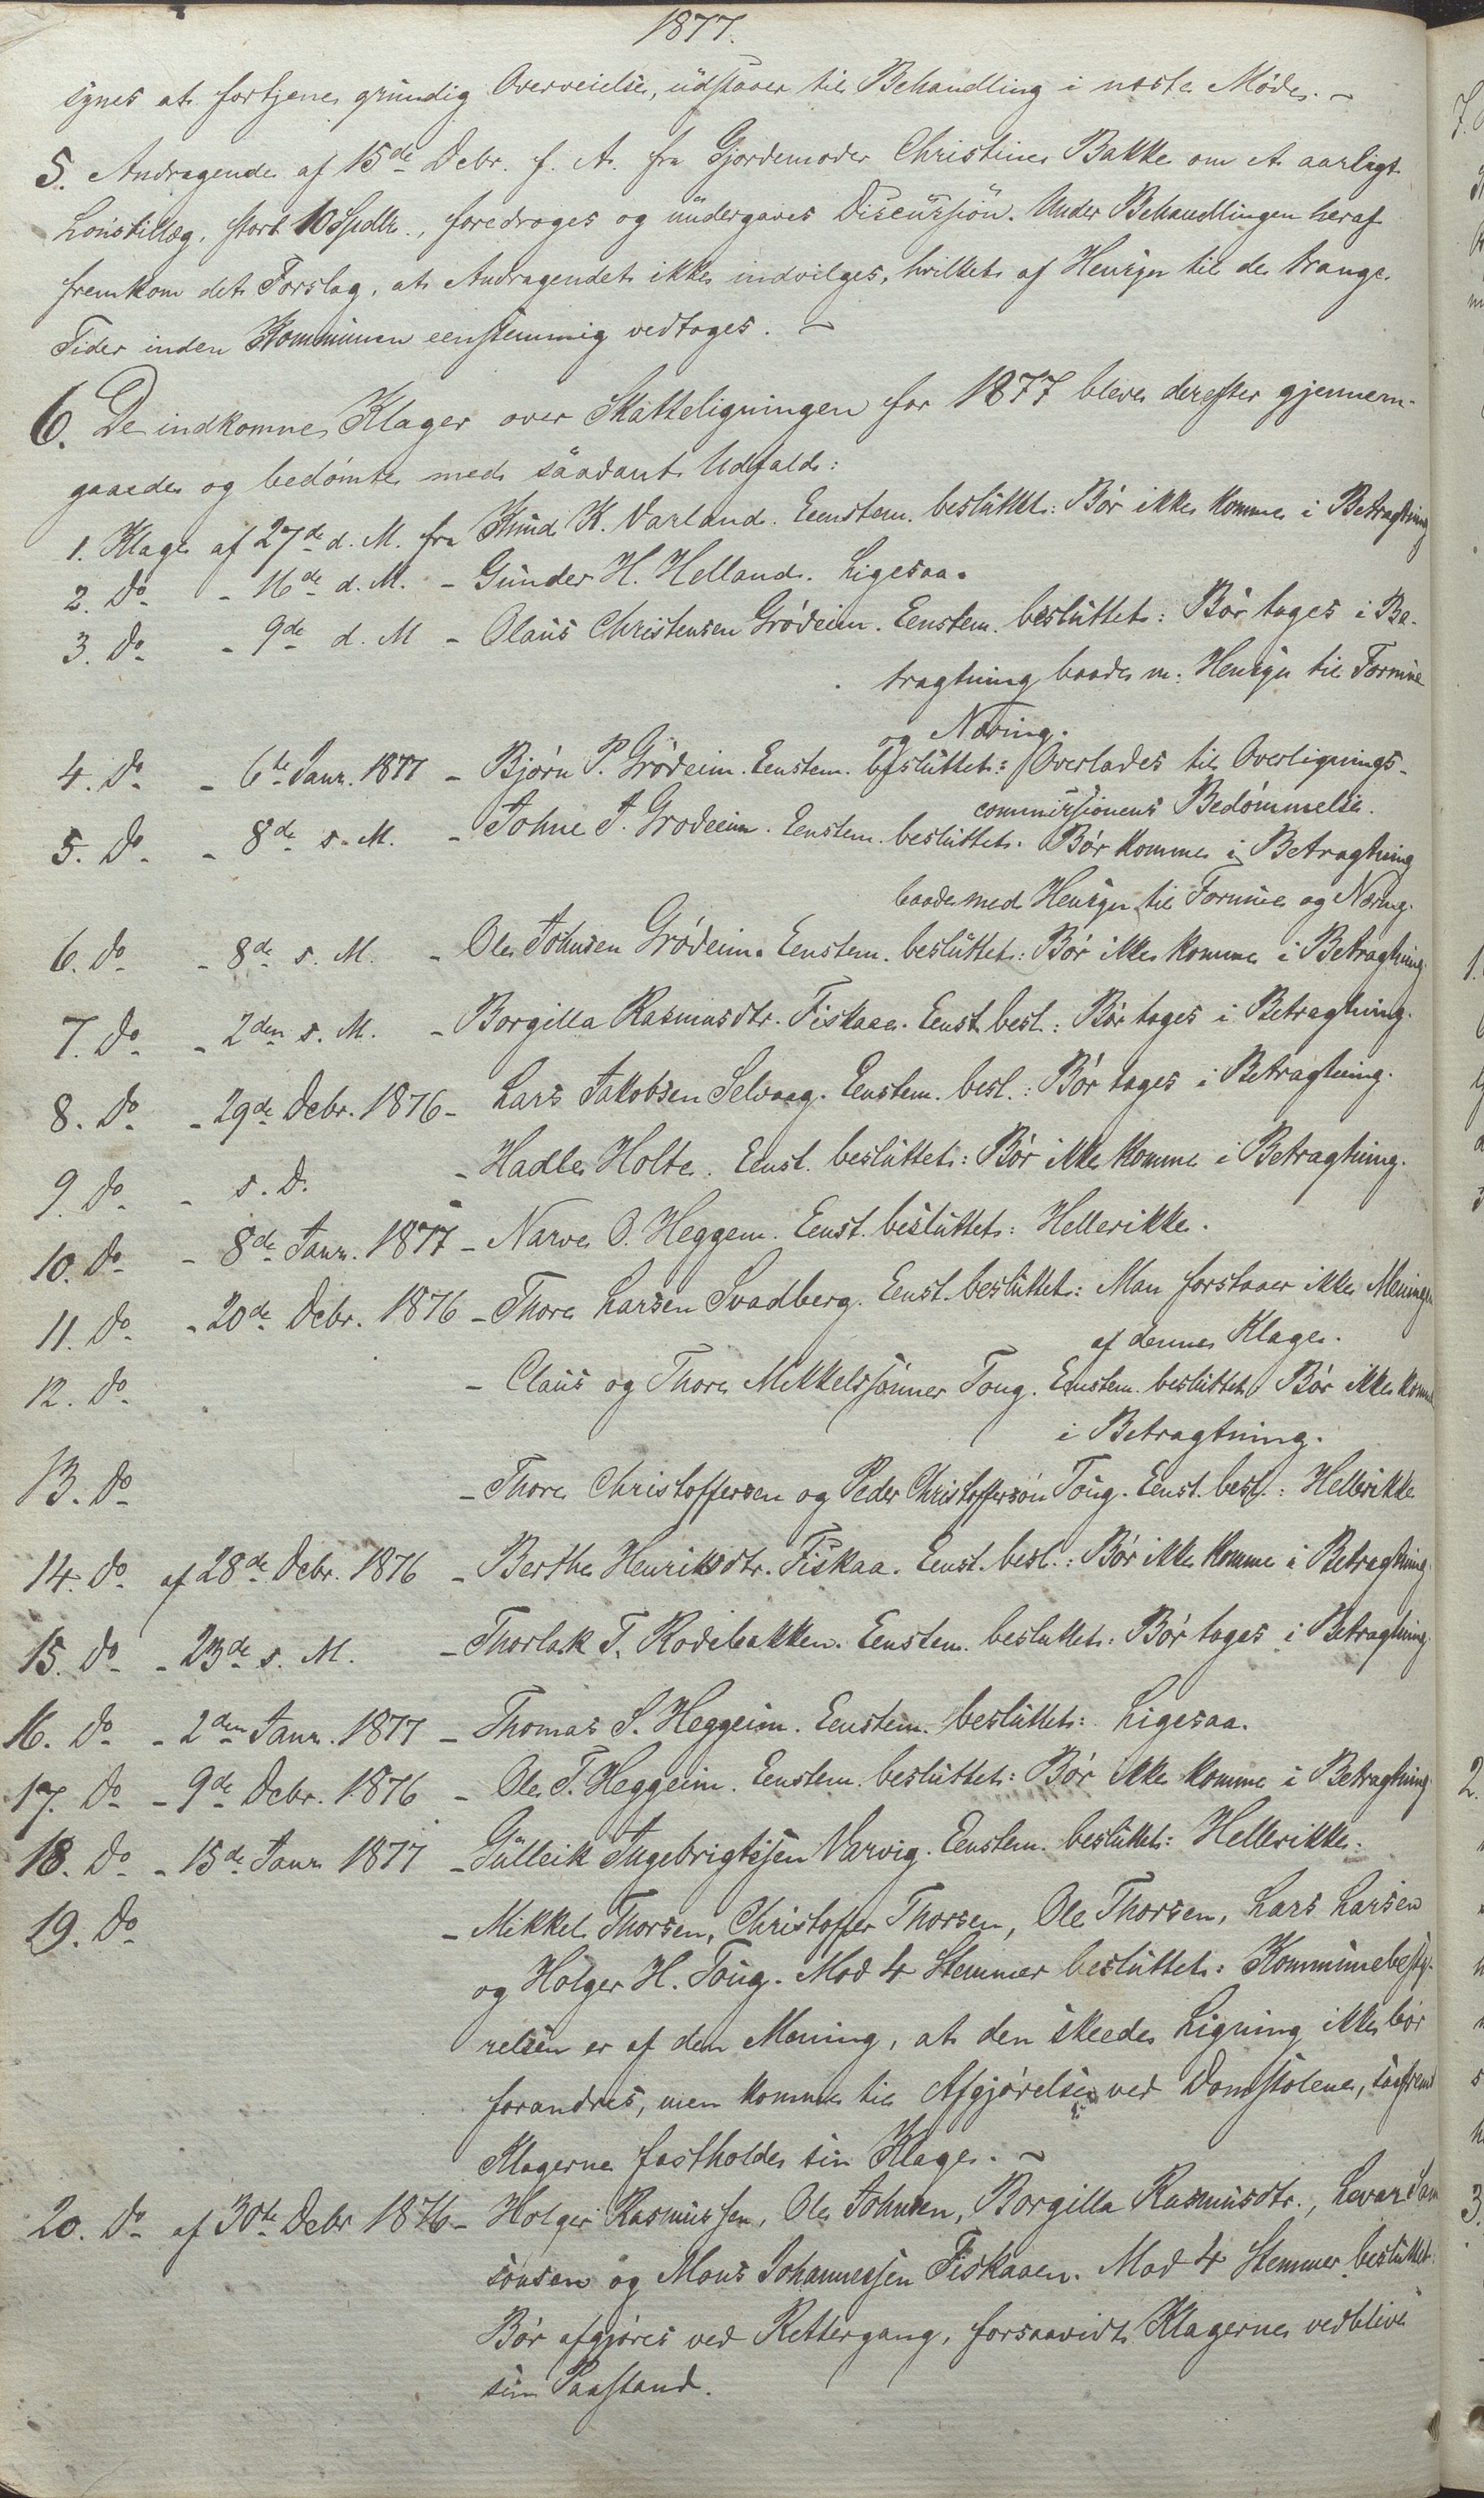 1877.
synes at fortjene grundig Overveielse, udstaaer til Behandling i næste Møde. –
5. Andragende af 15de Debr. f. A. fra Gjordemoder Christine Bakke om et aarligt
Lønstillæg, stort 10 Spdlr., foredroges og undergaves Discussion. Under Behandlingen heraf
fremkom det Forslag, at Andragendet ikke indvilges, hvilket af Hensyn til de trange
Tider inden Kommunen eenstemmig vedtoges. –
6. De indkomne Klager over Skatteligningen for 1877 bleve derefter gjennem-
gaaede og bedømte med saadant Udfald:
1. Klage af 27de d. M. fra Knud K. Varland. Eenstem. besluttet: Bør ikke komme i Betragtning
2. Do - 16de d. M. - Gunder H. Helland. Ligesaa.
3. Do - 9de d. M - Olaus Christensen Grødeim. Eenstem. besluttet: Bør tages i Be-
tragtning baade m: Hensyn til Formue
og Næring.
4. Do - 6te Janr. 1877 - Bjørn P. Grødeim. Eenstem. besluttet: Overlades til Overlignings-
commissionens Bedømmelse.
5. Do - 8de s. M. - Johne J. Grødeim. Eenstem. besluttet: Bør komme i Betragtning
baade med Hensyn til Formue og Næring.
6. Do - 8de s. M. - Ole Johnsen Grødeim. Eenstem. besluttet: Bør ikke komme i Betragtning.
7. Do - 2den s. M. - Borgilla Rasmusdtr. Fiskaae. Eenst. besl.: Bør tages i Betragtning.
8. Do - 29de Debr. 1876 - Lars Jakobsen Selvaag. Eenstem. besl.: Bør tages i Betragtning.
9. Do - s. D. - Hadle Holte. Eenst. besluttet: Bør ikke komme i Betragtning.
10. Do - 8de Janr. 1877 - Narve O. Heggem. Eenst. besluttet: Hellerikke.
11. Do - 20de Debr. 1876 - Thore Larsen Svadberg. Eenst. besluttet: Man forstaaer ikke Meningen
af denne Klage.
12. Do - Claus og Thore Mikkelssønner Toug. Eenstem. besluttet: Bør ikke komme
i Betragtning.
13. Do - Thore Christoffersen og Peder Christoffersøn Toug. Eenst. besl.: Hellerikke
14. Do af 28de Debr. 1876 - Berthe Henriksdtr. Fiskaa. Eenst. besl.: Bør ikke komme i Betragtning.
15. Do - 23de s. M. - Thorlak T. Rodebakken. Eenstem. besluttet: Bør tages i Betragtning.
16. Do - 2den Janr. 1877 - Thomas S. Heggeim. Eenstem. besluttet: Ligesaa.
17. Do - 9de Debr. 1876 - Ole T. Heggeim. Eenstem. besluttet: Bør ikke komme i Betragtning.
18. Do - 15de Janr 1877 - Gulleik Ingebrigtssen Varvig. Eenstem. besluttet: Hellerikke.
19. Do - Mikkel Thorsen, Christoffer Thorsen, Ole Thorsen, Lars Larsen
og Holger H. Toug. Mod 4 Stemmer besluttet: Kommunebesty-
relsen er af den Mening, at den skeede Ligning ikke bør
forandres, men komme til Afgjørelse ved Domstolene, saafremt
Klagerne fastholde sin Klage. –
20. Do af 30te Debr 1876 - Holger Rasmussen, Ole Johnsen, Borgilla Rasmusdtr., Levar Sam
sonsen og Mons Johannessen Fiskaaen. Mod 4 Stemmer besluttet:
Bør afgjøres ved Rettergang, forsaavidt Klagerne vedblive
sin Paastand.